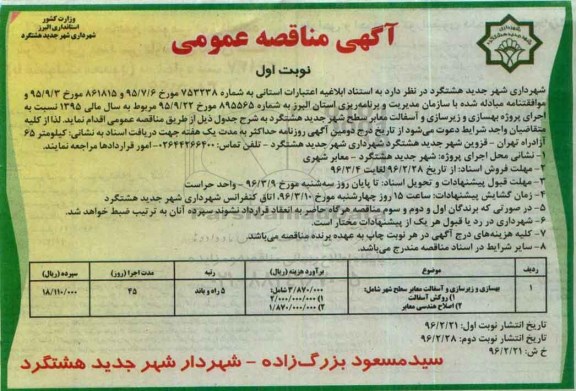 وزارت کشور
استانداری البرز
شهرداری شهر جدید هشتگرد
آگهی مناقصه عمومی
نوبت اول
شهرداری شهر جدید هشتگرد در نظر دارد به استناد ابلاغیه اعتبارات استانی به شماره ۷۵۳۲۳۸ مورخ ۹۵/۷/۶ و ۸۶۱۸۱۵ مورخ ۹۵/۹/۳ و
موافقتنامه مبادله شده با سازمان مدیریت و برنامه‌ریزی استان البرز به شماره ۸۹۵۵۶۵ مورخ ۹۵/۹/۲۲ مربوط به سال مالی ۱۳۹۵ نسبت به
اجرای پروژه بهسازی و زیرسازی و آسفالت معابر سطح شهر جدید هشتگرد به شرح جدول ذیل از طریق مناقصه عمومی اقدام نماید. لذا از کلیه
متقاضیان واجد شرایط دعوت می‌شود از تاریخ درج دومین آگهی روزنامه حداکثر به مدت یک هفته جهت دریافت اسناد به نشانی: کیلومتر ۶۵
آزادراه تهران - قزوین شهر جدید هشتگرد شهرداری شهر جدید هشتگرد - تلفن تماس: ۰۲۶۴۴۲۶۶۴۰۰- امور قراردادها مراجعه نمایند.
۱- نشانی محل اجرای پروژه: شهر جدید هشتگرد - معابر شهری
۲- مهلت فروش اسناد: از تاریخ ۹۶/۲/۲۸ لغایت ۹۶/۳/۴
۳- مهلت قبول پیشنهادات و تحویل اسناد: تا پایان روز سه‌شنبه مورخ ۹۶/۳/۹ - واحد حراست
۴- زمان گشایش پیشنهادات: ساعت ۱۵ روز چهارشنبه مورخ ۹۶/۳/۱۰، اتاق کنفرانس شهرداری شهر جدید هشتگرد
۵- در صورتی که برندگان اول و دوم و سوم مناقصه هرگاه حاضر به انعقاد قرارداد نشوند سپرده آنان به ترتیب ضبط خواهد شد.
۶- شهرداری در رد یا قبول هر یک از پیشنهادات مختار است.
۷- کلیه هزینه‌های درج آگهی در هر نوبت چاپ به عهده برنده مناقصه می‌باشد.
۸- سایر شرایط در اسناد مناقصه مندرج می‌باشد.
ردیف موضوع برآورد هزینه (ریال) رتبه مدت اجرا (روز) سپرده (ریال)
۱ بهسازی و زیرسازی و آسفالت معابر سطح شهر شامل: ۳/۸۷۰/۰۰۰ شامل: ۵ راه و باند ۴۵ ۱۸/۱۱۰/۰۰۰
۱) روکش آسفالت ۱) ۲/۰۰۰/۰۰۰/۰۰۰
۲) اصلاح هندسی معابر ۲) ۱/۸۷۰/۰۰۰/۰۰۰
تاریخ انتشار نوبت اول: ۹۶/۲/۲۱
تاریخ انتشار نوبت دوم: ۹۶/۲/۲۸
خ ش: ۹۶/۲/۲۱
سیدمسعود بزرگ‌زاده - شهردار شهر جدید هشتگرد